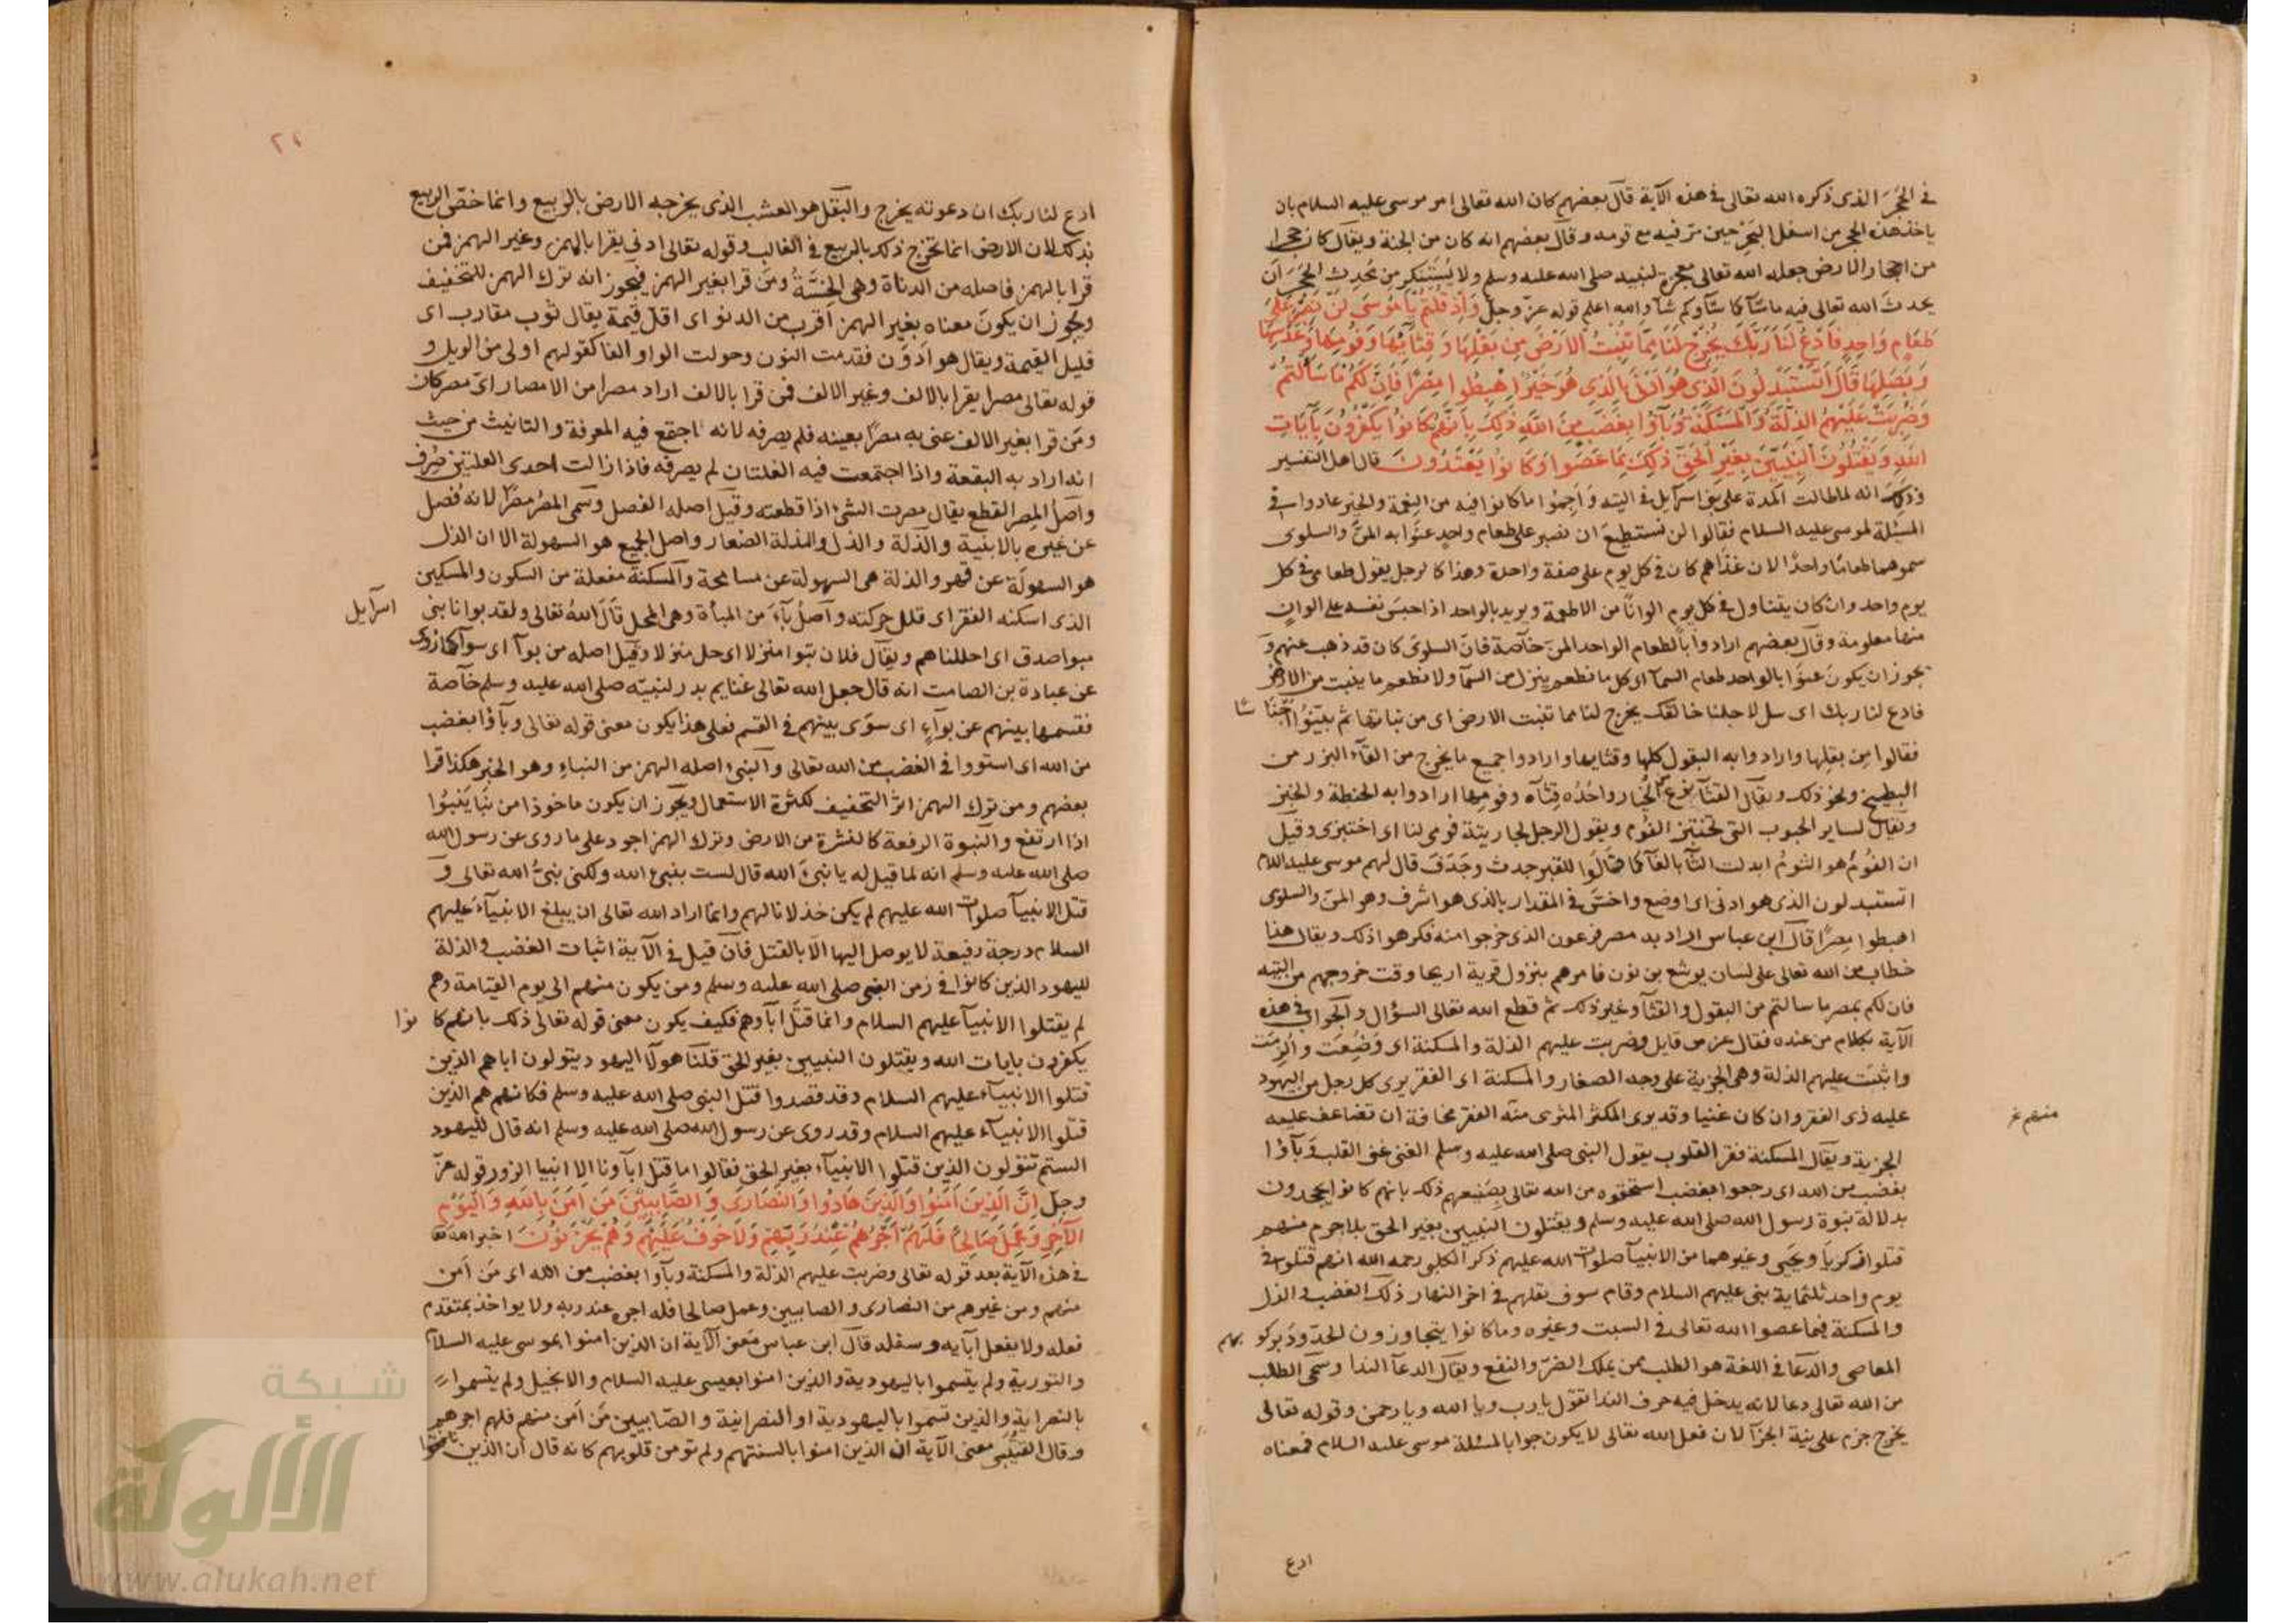 في الحجر الذى ذكره الله تعالى في هذه الآية قال بعضهم كان الله تعالى امر موسى عليه السلام بان
ياخذ هذا الحجر من اسفل البحر حين مر فيه مع قومه وقال بعضهم انه كان من الجنة ويقال كان حجرا
من احجار الارض جعله الله تعالى معجزة لنبيه صلى الله عليه وسلم ولا يستنكر من محدث الحجر ان
يحدث الله تعالى فيه ما شآ كما شآ وكم شآ والله اعلم قوله عز وجل وَاِذْ قُلْتُمْ يَا مُوسَى لَنْ نَصْبِرَ عَلَى
طَعَامٍ وَاحِدٍ فَادْعُ لَنَا رَبَّكَ يُخْرِجْ لَنَا مِمَّا تُنْبِتُ الاَرْضُ مِنْ بَقْلِهَا وَقِثَّآئِهَا وَفُومِهَا وَعَدَسِهَا
وَبَصَلِهَا قَالَ اَتَسْتَبْدِلُونَ الَّذِى هُوَ اَدْنَى بِالَّذِى هُوَ خَيْرٌ اِهْبِطُوا مِصْرًا فَاِنَّ لَكُمْ مَا سَاَلْتُمْ
وَضُرِبَتْ عَلَيْهِمُ الذِّلَّةُ وَالْمَسْكَنَةُ وَبَآؤُا بِغَضَبٍ مِنَ اللَّهِ ذَلِكَ بِاَنَّهُمْ كَانُوا يَكْفُرُونَ بِآيَاتِ
اللَّهِ وَيَقْتُلُونَ النَّبِيِّينَ بِغَيْرِ الْحَقِّ ذَلِكَ بِمَا عَصَوْا وَكَانُوا يَعْتَدُونَ قال اهل التفسير
وذلك انه لما طالت المدة على بنى اسرآيل في التيه واجموا ما كانوا فيه من النعمة والخير عادوا في
المسئلة لموسى عليه السلام فقالوا لن نستطيع ان نصبر على طعام واحد عنوا به المن والسلوى
سموهما طعاما واحدا لان غذاهم كان في كل يوم على صفة واحدة وهذا كالرجل يقول طعامى في كل
يوم واحد وان كان يتناول في كل يوم الوانا من الاطعمة ويريد بالواحد اذا حبس نفسه على الوان
منها معلومة وقال بعضهم ارادوا بالطعام الواحد المن خآصة فان السلوى كان قد ذهب عنهم و
يجوز ان يكون عنوا بالواحد طعام السمآ اى كل ما نطعم ينزل من السمآ ولا نطعم ما ينبت من الارض
فادع لنا ربك اى سل لاجلنا خالقك يخرج لنا مما تنبت الارض اى من نباتها ثم بينوا
فقالوا من بقلها وارادوا به البقول كلها وقثايها وارادوا جميع ما يخرج من القثآء البزر من
البطيخ ونحو ذلك ويقال القثآ نوع الخيار واحده قثآه وفومها ارادوا به الحنطة والخبز
ويقال لساير الحبوب التى تختبز الفوم ويقول الرجل لجاريته فومى لنا اى اختبزى وقيل
ان الفوم هو الثوم ابدلت الثآ بالفآ كما قالوا للقبر جدث وجدف قال لهم موسى عليه السلام
اتستبدلون الذى هو ادنى اى اوضع واخس في المقدار بالذى هو اشرف وهو المن والسلوى
اهبطوا مصرا قال ابن عباس اراد به مصر فرعون الذى خرجوا منه فكرهوا ذلك ويقال هذا
خطاب من الله تعالى على لسان يوشع بن نون فامرهم بنزول قرية اريحا وقت خروجهم من التيه
فان لكم بمصر ما سالتم من البقول والقثآ وغير ذلك ثم قطع الله تعالى السؤال والجواب في هذه
الآية بكلام من عنده فقال عز من قايل وضربت عليهم الذلة والمسكنة اى وضعت والزمت
واثبتت عليهم الذلة وهى الجزية على وجه الصغار والمسكنة اى الفقر يرى كل رجل من اليهود
عليه زى الفقر وان كان غنيا وقد يرى المكثر المثرى منه الفقر مخافة ان تضاعف عليه
منهم
الجزية ويقال المسكنة فقر القلوب يقول النبى صلى الله عليه وسلم الغنى غنى القلب وبآؤا
بغضب من الله اى رجعوا بغضب استحقوه من الله تعالى بصنيعهم ذلك بانهم كانوا يجحدون
بدلالة نبوة رسول الله صلى الله عليه وسلم ويقتلون النبيين بغير الحق بلا جرم منهم
قتلوا زكريا ويحيى وغيرهما من الانبيآ صلوات الله عليهم ذكر الكلبى رحمه الله انهم قتلوا في
يوم واحد ثلثماية نبى عليهم السلام وقام سوق بقلهم في اخر النهار ذلك الغضب والذل
والمسكنة بما عصوا الله تعالى في السبت وغيره وما كانوا يتجاوزون الحد
المعاصى والدعآ في اللغة هو الطلب ممن يملك الضر والنفع ويقال الدعآ الندا وسمى الطلب
من الله تعالى دعا لانه يدخل فيه حرف الندا تقول يا رب ويا الله ويا رحمن وقوله تعالى
يخرج جزم على نية الجزآ لان فعل الله تعالى لا يكون جوابا لمسئلة موسى عليه السلام فمعناه
ادع
ادع لنا ربك ان دعوته يخرج والبقل هو العشب الذى يخرجه الارض بالربيع وانما خص الربيع
بذلك لان الارض انما تخرج ذلك بالربيع في الغالب وقوله تعالى ادنى يقرا بالهمز وغير الهمز فمن
قرا بالهمز فاصله من الدناة وهى الخسة ومن قرا بغير الهمز فيجوز انه ترك الهمز للتخفيف
ويجوز ان يكون معناه بغير الهمز اقرب من الدنو اى اقل قيمة يقال ثوب مقارب اى
قليل القيمة ويقال هو ادون فقدمت النون وحولت الواو الفا كقولهم اولى من الويل و
قوله تعالى مصرا يقرا بالالف وغير الالف فمن قرا بالالف اراد مصرا من الامصار اى مصر كان
ومن قرا بغير الالف عنى به مصرا بعينه فلم يصرفه لانه اجتمع فيه المعرفة والتانيث من حيث
انه اراد به البقعة واذا اجتمعت فيه العلتان لم يصرفه فاذا زالت احدى العلتين صرف
واصل المصر القطع يقال مصرت الشئ اذا قطعته وقيل اصله الفصل وسمى المصر مصرا لانه فصل
عن غيره بالابنية والذلة والذل والمذلة الصغار واصل الجميع هو السهولة الا ان الذل
هو السهولة عن قهر والذلة هى السهولة عن مسامحة والمسكنة مفعلة من السكون والمسكين
الذى اسكنه الفقر اى قلل حركته واصل بآء من المبأة وهى المحل قال الله تعالى ولقد بوانا بنى اسرآيل
مبوا صدق اى احللناهم ويقال فلان تبوا منزلا اى حل منزلا وقيل اصله من بوآ اى سوآ كما روى
عن عبادة بن الصامت انه قال جعل الله تعالى غنايم بدر لنبيه صلى الله عليه وسلم خآصة
فقسمها بينهم عن بوآء اى سوى بينهم في القسم فعلى هذا يكون معنى قوله تعالى وبآؤا بغضب
من الله اى استووا في الغضب من الله تعالى والنبئ اصله الهمز من النباء وهو الخبر هكذا قرا
بعضهم ومن ترك الهمز اثر التخفيف لكثرة الاستعمال ويجوز ان يكون ماخوذا من نبا ينبوا
اذا ارتفع والنبوة الرفعة كالنشرة من الارض وترك الهمز اجود على ما روى عن رسول الله
صلى الله عليه وسلم انه لما قيل له يا نبئ الله قال لست بنبئ الله ولكنى نبى الله تعالى و
قتل الانبيآ صلوات الله عليهم لم يكن خذلانا لهم وانما اراد الله تعالى ان يبلغ الانبيآء عليهم
السلام درجة رفيعة لا يوصل اليها الا بالقتل فان قيل في الآية اثبات الغضب والذلة
لليهود الذين كانوا في زمن النبى صلى الله عليه وسلم ومن يكون منهم الى يوم القيامة وهم
لم يقتلوا الانبيآ عليهم السلام وانما قتل ابآوهم فكيف يكون معنى قوله تعالى ذلك بانهم كانوا
يكفرون بايات الله ويقتلون النبيين بغير الحق قلنا هولآ اليهود يتولون اباهم الذين
قتلوا الانبيآء عليهم السلام وقد قصدوا قتل النبى صلى الله عليه وسلم فكانهم هم الذين
قتلوا الانبيآء عليهم السلام وقد روى عن رسول الله صلى الله عليه وسلم انه قال لليهود
الستم تتولون الذين قتلوا الانبيآء بغير الحق فقالوا ما قتل ابآونا الا انبيا الزور قوله عز
وجل اِنَّ الَّذِينَ آمَنُوا وَالَّذِينَ هَادُوا وَالنَّصَارَى وَالصَّابِئِينَ مَنْ اَمَنَ بِاللَّهِ وَالْيَوْمِ
الآخِرِ وَعَمِلَ صَالِحًا فَلَهُمْ اَجْرُهُمْ عِنْدَ رَبِّهِمْ وَلَا خَوْفٌ عَلَيْهِمْ وَلَا هُمْ يَحْزَنُونَ اخبر الله تعا
في هذه الآية بعد قوله تعالى وضربت عليهم الذلة والمسكنة وبآوا بغضب من الله اى من آمن
منهم ومن غيرهم من النصارى والصابيين وعمل صالحا فله اجره عند ربه ولا يواخذ بمتقدم
فعله ولا بفعل آبآيه وسلفه قال ابن عباس معنى الآية ان الذين امنوا بموسى عليه السلام
والتورية ولم يتسموا باليهودية والذين امنوا بعيسى عليه السلام والانجيل ولم يتسموا
بالنصرانية والذين تسموا باليهودية او النصرانية والصابيين من آمن منهم فلهم اجرهم
وقال القتيبى معنى الآية ان الذين امنوا بالسنتهم ولم تومن قلوبهم كانه قال ان الذين نافقوا
شبكة
الألوكة
www.alukah.net